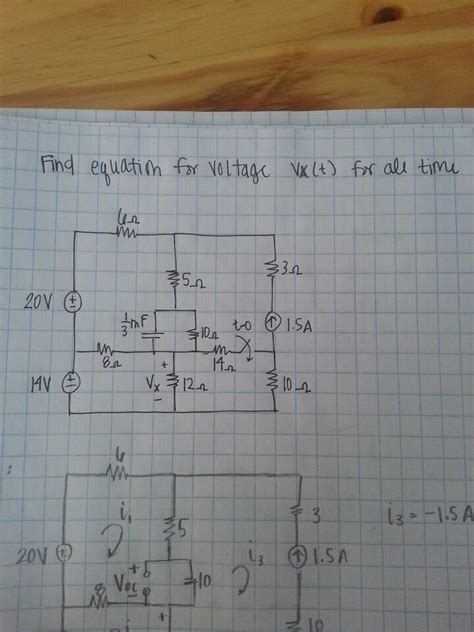 Find equation for voltage Vx(t) for all time
6Ω
20V
5Ω
3Ω
1/3 mF
10Ω
t=0
1.5A
8Ω
14Ω
14V
Vx
+
−
12Ω
10Ω
6
i₁
5
3
i₃ = -1.5A
20V
+
Voc
−
10
i₃
1.5A
8
+
10